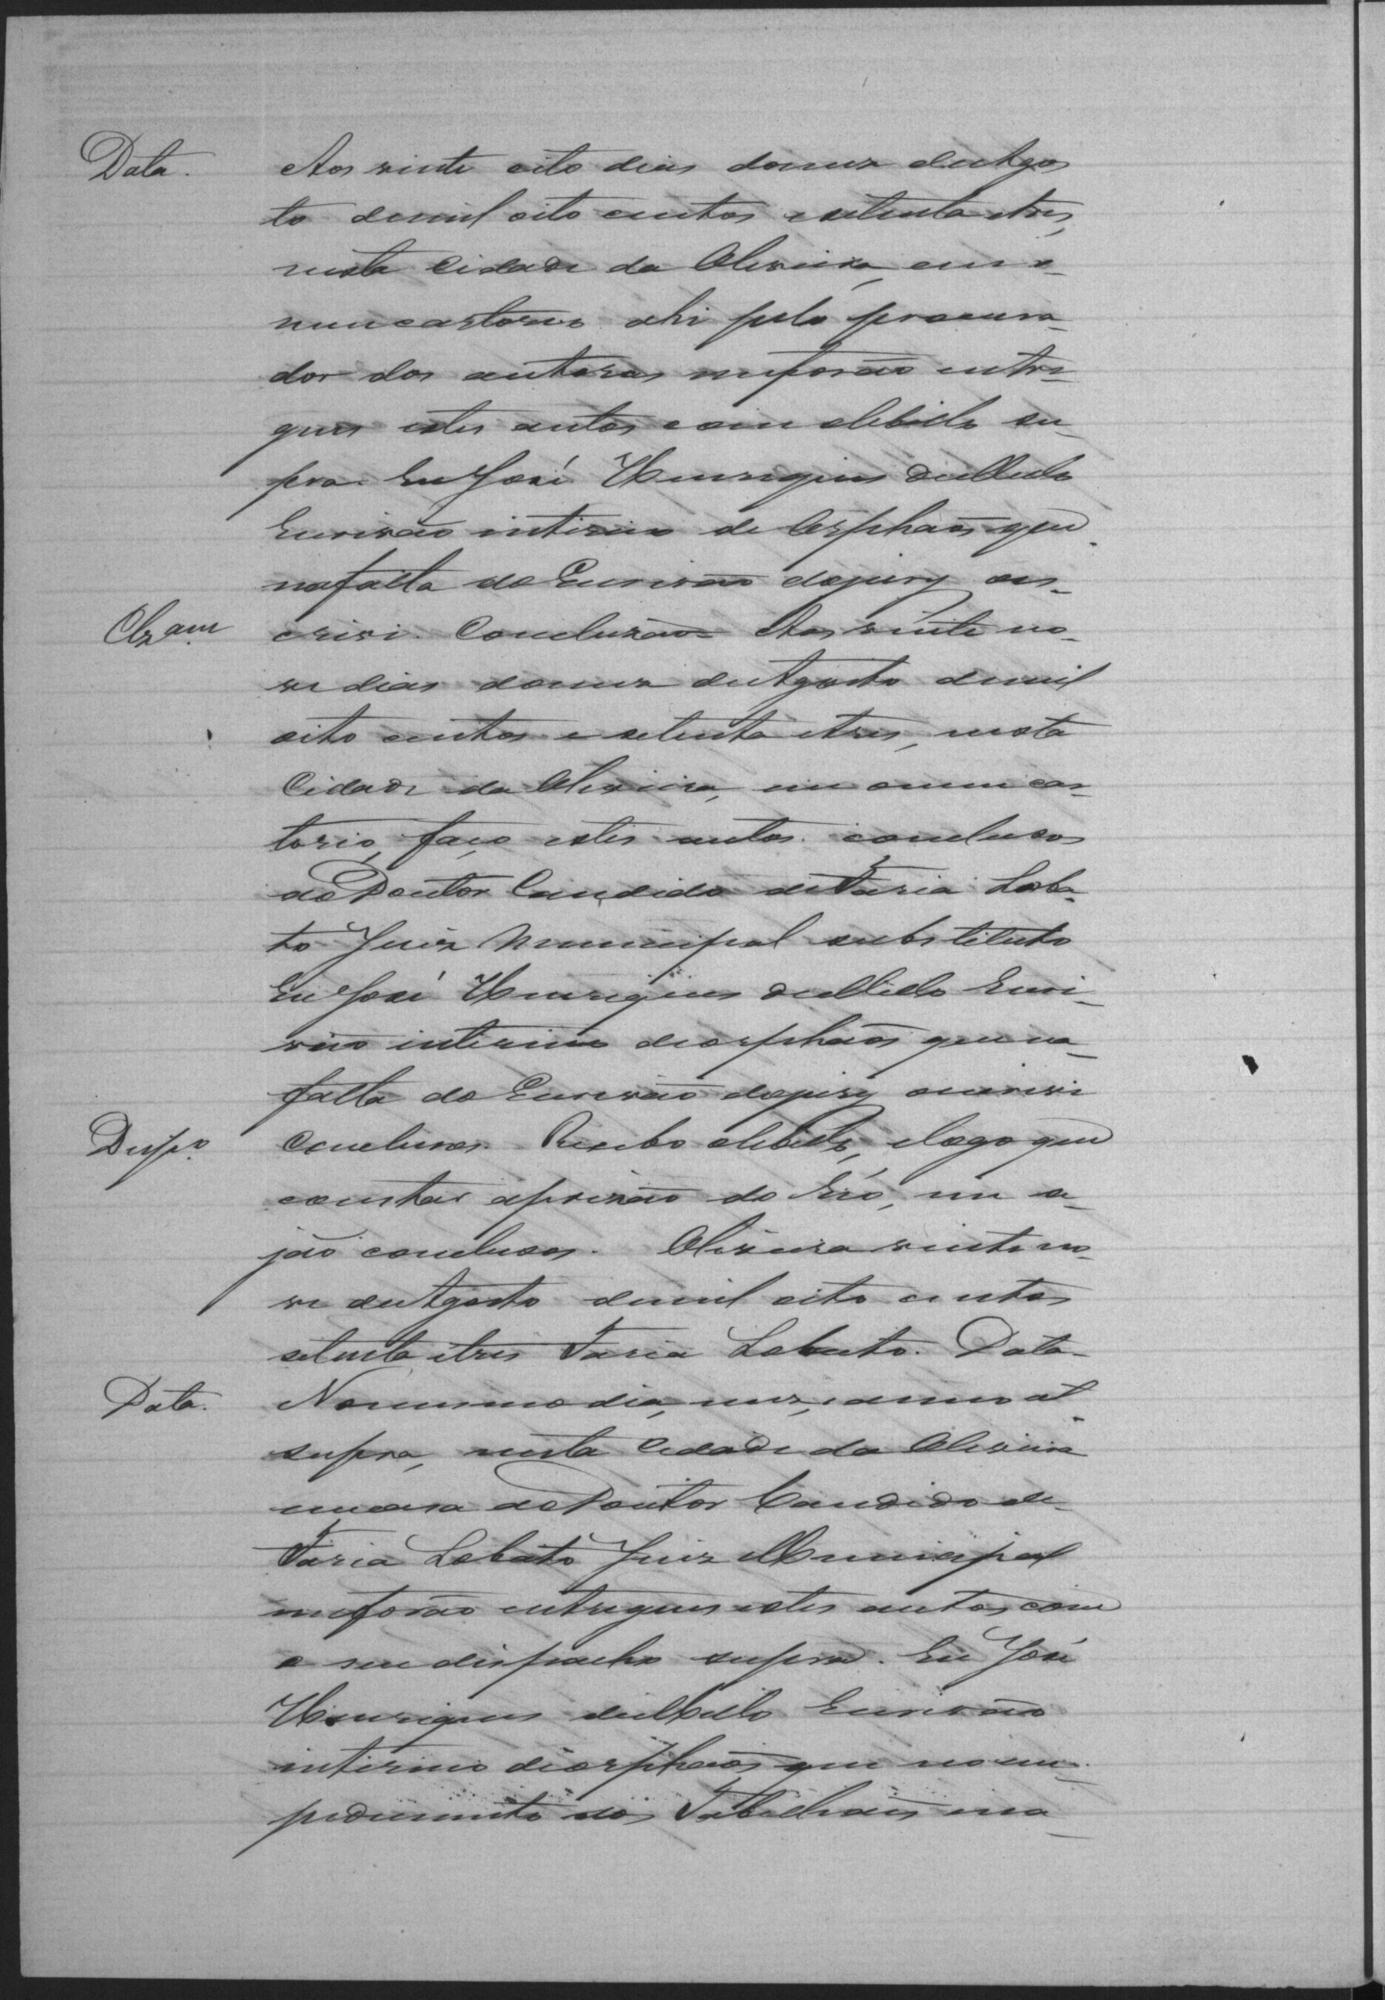 Data. Aos vinte oito dias domez deAgos
to demil oito centos e setenta etres,
nesta Cidade da Oliveira, em o
meu cartorio ahi pelo procura-
dor dos autores meforão entre-
gues estes autos com olibello su-
pra. Eu José Henriques deMello
Escrivão interino de Orphaõs que
nafalta do Escrivão dojury es-
Clzam crivi. Concluzão Aos vinte no-
ve dias domez deAgosto demil
oito centos e setenta etres, nesta
Cidade da Oliveira, em omeu car-
torio, faço estes autos conclusos
aoDoutor Candido deFaria Loba-
to Juiz Municipal substituto
EuJosé Henriques deMello Escri-
vão interino deorphaõs que na
falta do Escrivão dojury escrivi
Desp.o Concluzos. Recebo olibello, elogo que
constar aprizão do Reo, me se-
jão conclusos. Oliveira vinte no-
ve deAgosto demil oito centos
setenta etres Faria Lobato. Data-
Data. Nomesmo dia, mez, eanno ut
supra, nesta Cidade da Oliveira
emcasa doDoutor Candido de
Faria Lobato Juiz Municipal
meforão entregues estes autos com
o seu despacho supra. Eu José
Henriques deMello Escrivão
interino deorphaõs que no im-
pedimento dos Tabelliaẽs